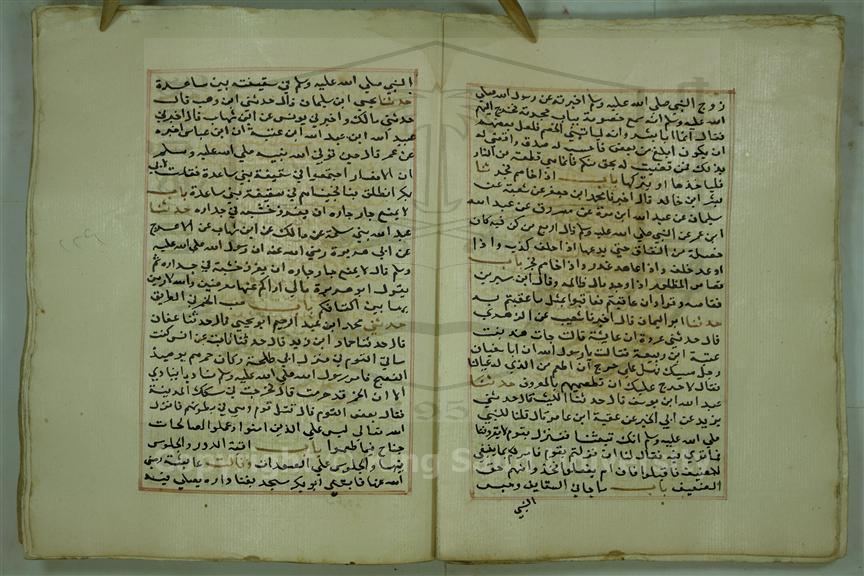 زوج النبي صلي الله عليه وسلم اخبرته عن رسول الله صلي
الله عليه وسلم انه سمع خصومة بباب حجرته فخرج اليهم
فقال انما انا بشر وانه ياتيني الخصم فلعل بعضهم
ان يكون ابلغ من بعض فاحسب انه صدق واقضي له
بذلك فمن قضيت له بحق مسلم فانما هي قطعة من النار
فلياخذها او يتركها باب اذا خاصم فجر حدثنا
بشر ابن خالد قال اخبرنا محمد ابن جعفر عن شعبة عن
سليمان عن عبد الله ابن مرة عن مسروق عن عبد الله
ابن عمر عن النبي صلي الله عليه وسلم قال اربع من كن فيه كان
خصلة من النفاق حتي يدعها اذا حدث كذب واذا
وعد خلف واذا عاهد غدر واذا خاصم فجر باب
قصاص المظلوم اذا وجد مال ظالمه وقال ابن سيرين
يقاصه وقرا وان عاقبتم فعاقبوا بمثل ما عوقبتم به
حدثنا ابو اليمان قال اخبرنا شعيب عن الزهري
قال حدثني عروة ان عايشة قالت جات هند بنت
عتبة ابن ربيعة فقالت يا رسول الله ان ابا سفيان
رجل مسيك فهل علي حرج ان اطعم من الذي له عيالنا
فقال لا حرج عليك ان تطعميهم بالمعروف حدثنا
عبد الله ابن يوسف قال حدثنا الليث قال حدثني
يزيد عن ابي الخير عن عقبة ابن عامر قال قلنا للنبي
صلي الله عليه وسلم انك تبعثنا فننزل بقوم لا يقروننا
فما تري فيه فقال لنا ان نزلتم بقوم فامر لكم بما ينبغي
للضيف فاقبلوا فان لم يفعلوا فخذوا منهم حق
الضيف باب ما جا في السقايف وجلس
النبي
النبي صلي الله عليه وسلم في سقيفة بني ساعدة
حدثنا يحيي ابن سليمان قال حدثني ابن وهب قال
حدثني مالك واخبرني يونس عن ابن شهاب قال اخبرني
عبيد الله ابن عبد الله ابن عتبة ان ابن عباس اخبره
عن عمر قال حين توفي الله نبيه صلي الله عليه وسلم
ان الانصار اجتمعوا في سقيفة بني ساعدة فقلت لابي
بكر انطلق بنا فجيناهم في سقيفة بني ساعدة باب
لا يمنع جار جاره ان يغرز خشبه في جداره حدثنا
عبد الله بن مسلمة عن مالك عن ابن شهاب عن الاعرج
عن ابي هريرة رضي الله عنه ان رسول الله صلي الله عليه
وسلم قال لا يمنع جار جاره ان يغرز خشبه في جداره ثم
يقول ابو هريرة مالي اراكم عنها معرضين والله لارمين
بها بين اكتافكم باب صب الخمر في الطريق
حدثني محمد ابن عبد الرحيم ابو يحيي قال حدثنا عفان
قال حدثنا حماد ابن زيد قال حدثنا ثابت عن انس كنت
ساقي القوم في منزل ابي طلحة وكان خمرهم يوميذ
الفضيخ فامر رسول الله صلي الله عليه وسلم مناديا ينادي
الا ان الخمر قد حرمت قال فجرت في سكك المدينة
فقال بعض القوم قد قتل قوم وهي في بطونهم فانزل
الله تعالي ليس علي الذين امنوا وعملوا الصالحات
جناح فيما طعموا باب افنية الدور والجلوس
فيها والجلوس علي الصعدات وقالت عايشة رضي
الله عنها فابتني ابو بكر مسجد بفنا داره يصلي فيه